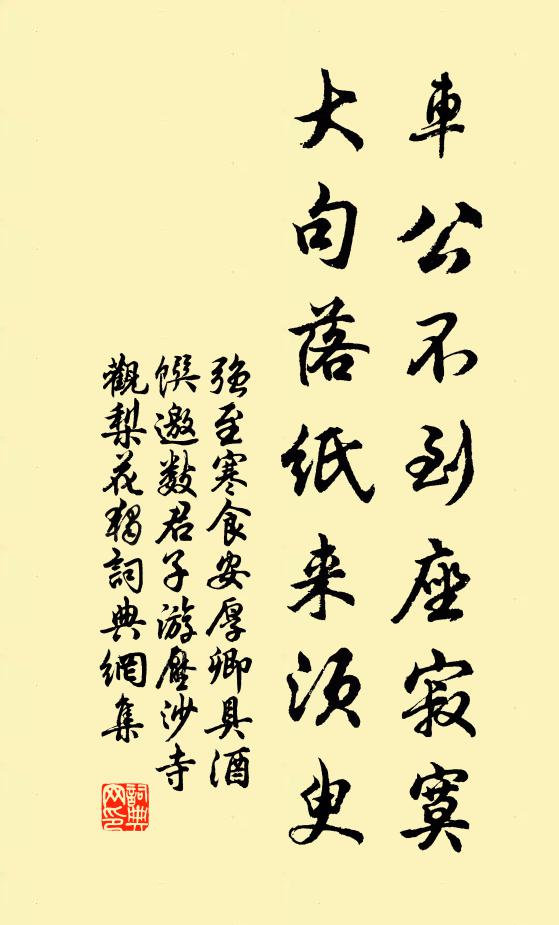 車公不到座寂寞
大句落紙来須臾
强至寒食安厚卿具酒
饌邀數君子游壓沙寺
觀梨花獨詞典網集
詞典網印